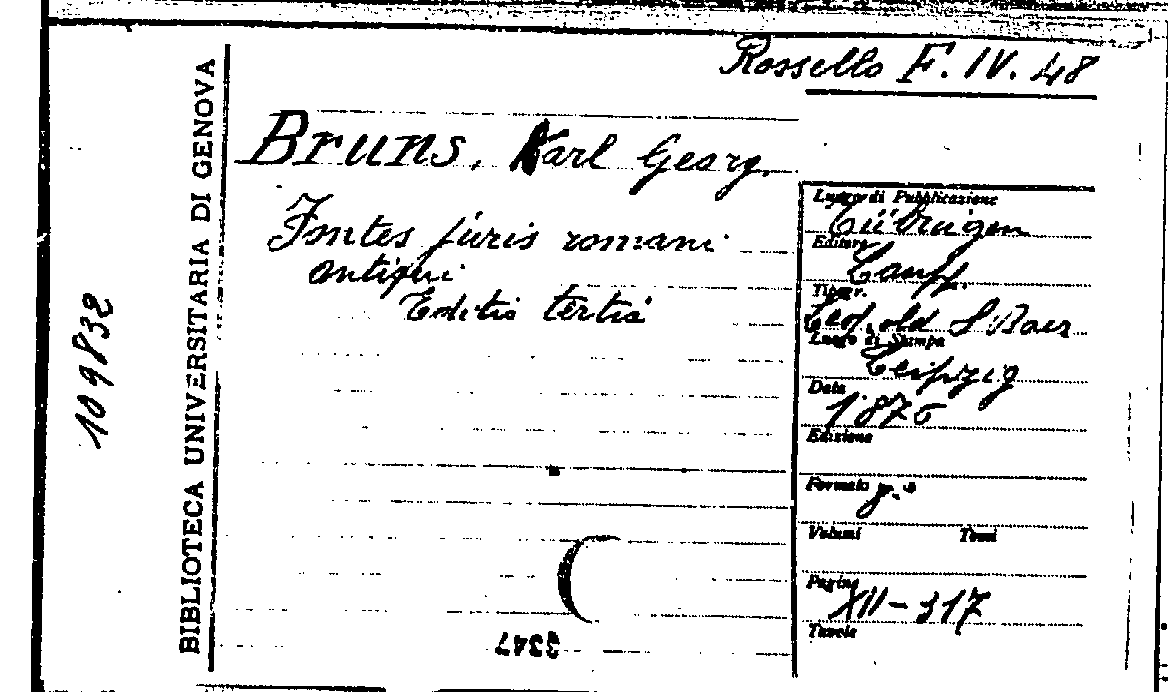 Rossello F. IV. 48
BIBLIOTECA UNIVERSITARIA DI GENOVA
109832
Bruns, Karl Georg.
Fontes juris romani
antiqui
Editio tertia
Luogo di Pubblicazione
Tübingen
Editore
Laupp.
Tipogr.
Leopold & Baer
Luogo di Stampa
Leipzig
Data
1876
Edizione
Formato 8.°
Volumi Tomi
Pagine
XII-317
Tavole
3347